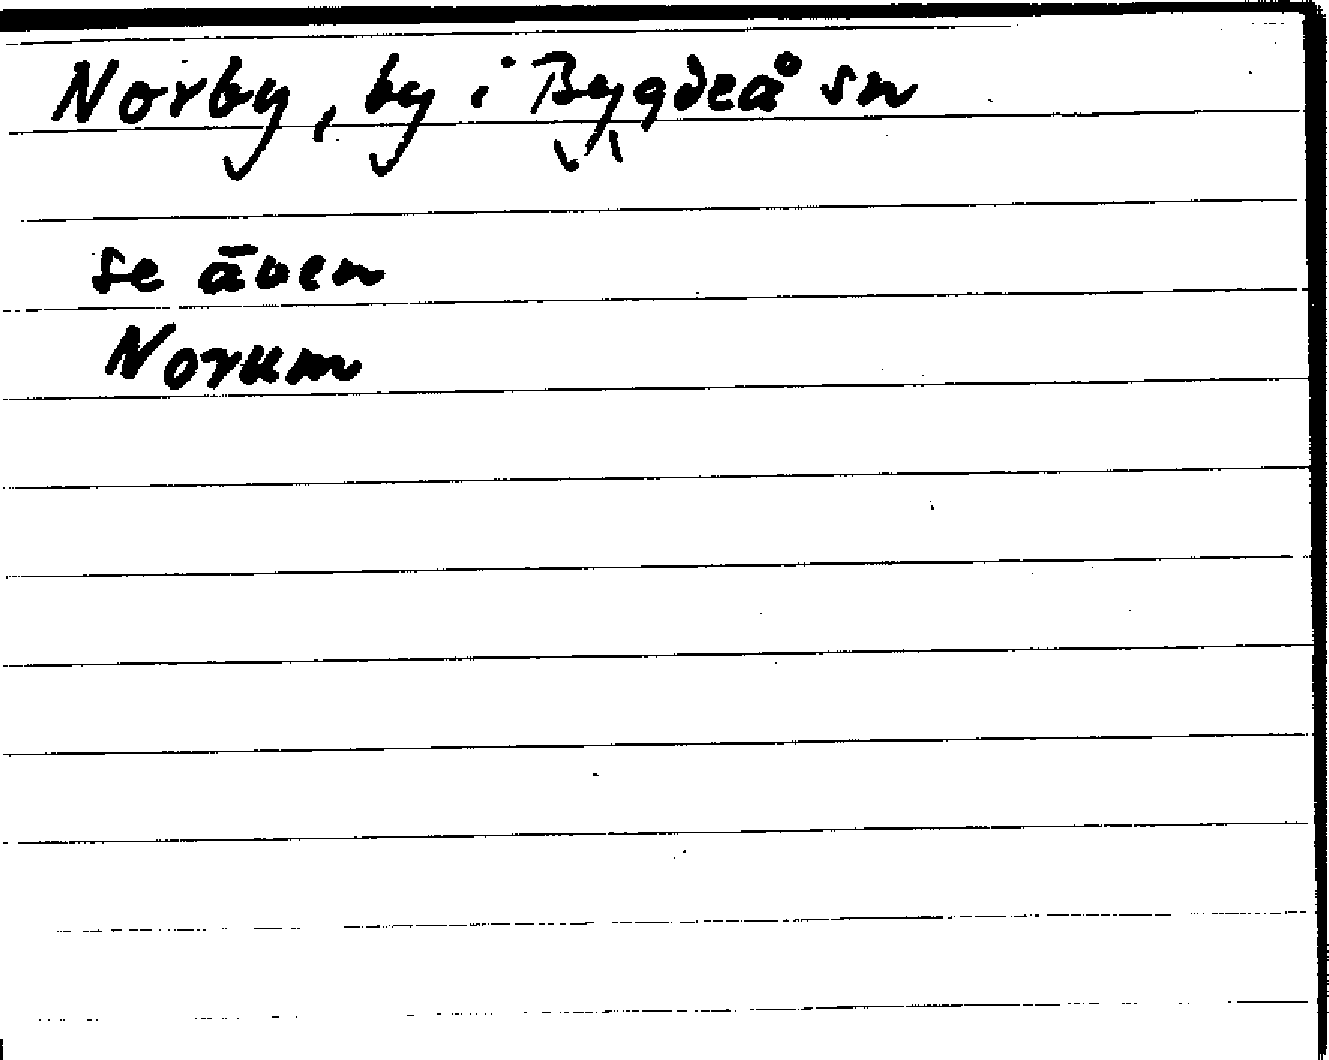 Norby, by i Bygdeå sn
se även
Norum